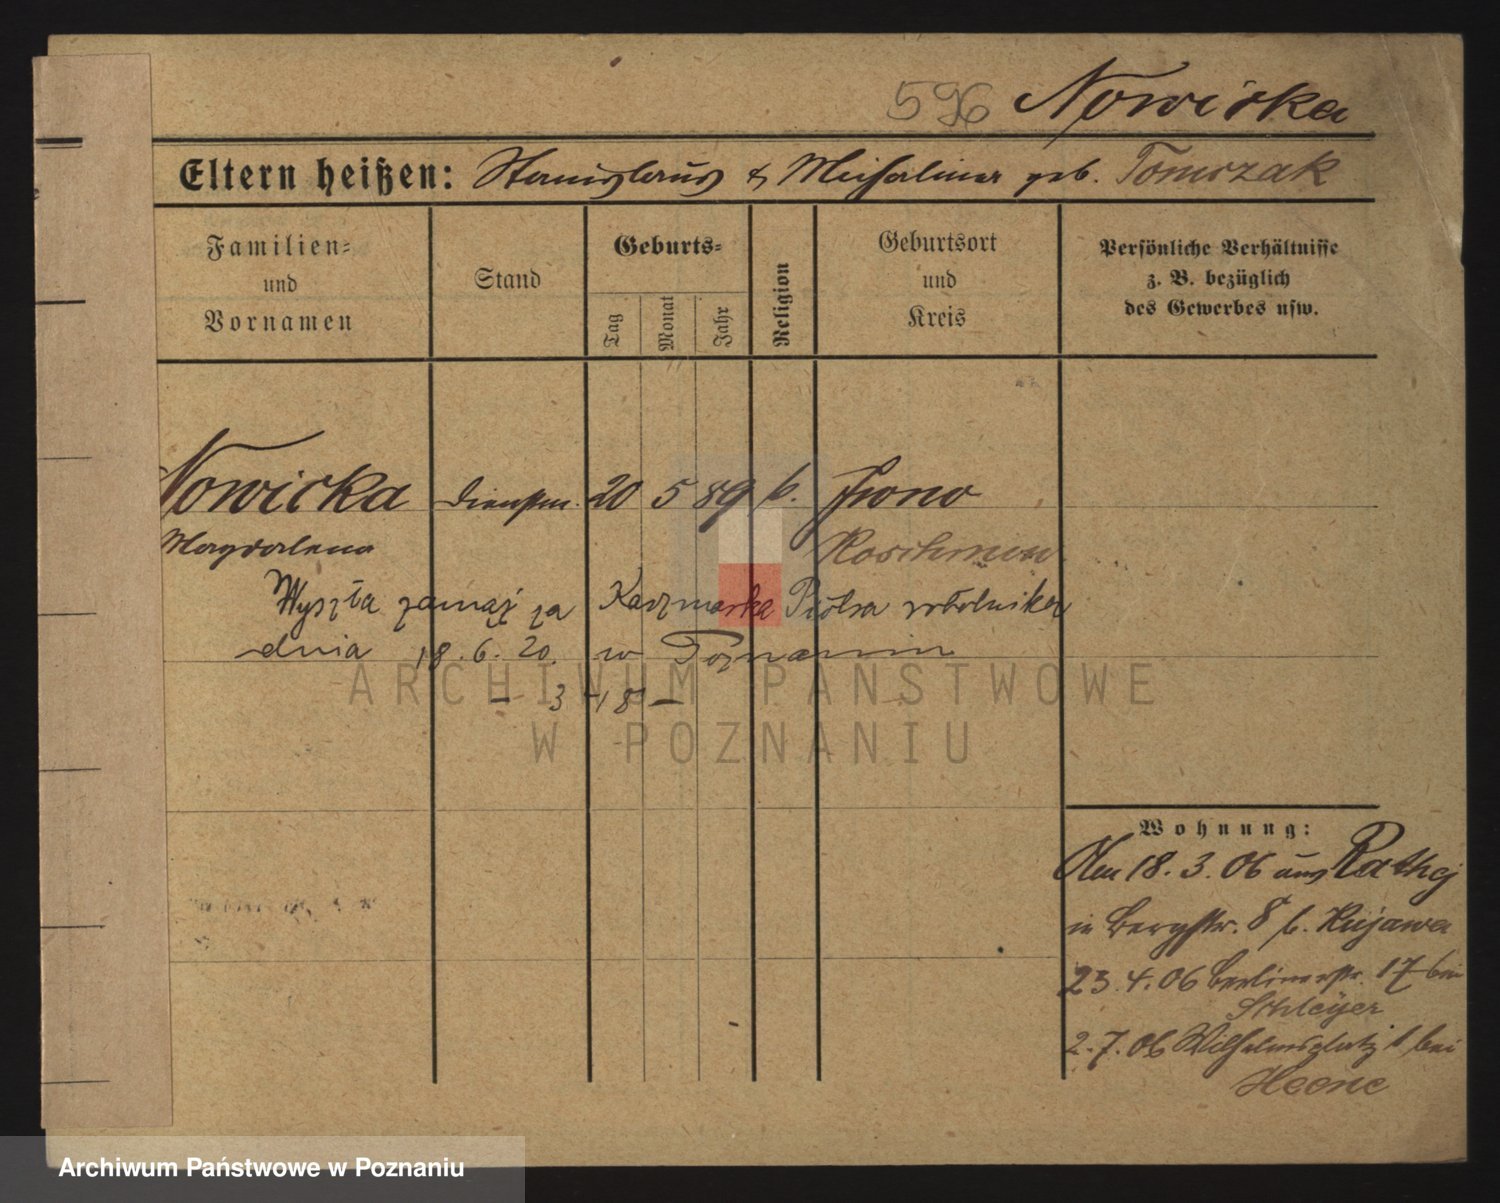 596 Nowicka
Eltern heißen: Stanislaus & Michalina geb. Tomczak
Familien-
und
Vornamen
Stand
Geburts-
Tag
Monat
Jahr
Religion
Geburtsort
und
Kreis
Persönliche Verhältnisse
z. B. bezüglich
des Gewerbes usw.
Nowicka Dienstm. 20 5 89 k.
Magdalena Koschmin
Wyszła zamąż za Kaczmarka Piotra robotnika
dnia 18. 6. 20. w Poznaniu
– 3 – 18 –
ARCHIWUM PAŃSTWOWE
W POZNANIU
Wohnung:
Den 18. 3. 06 aus
in Bergstr. 8 b. Kujawa
23. 4. 06 Berlinerstr. 17 bei
Schleyer
2. 7. 06 Wilhelmsplatz 1 bei
Archiwum Państwowe w Poznaniu